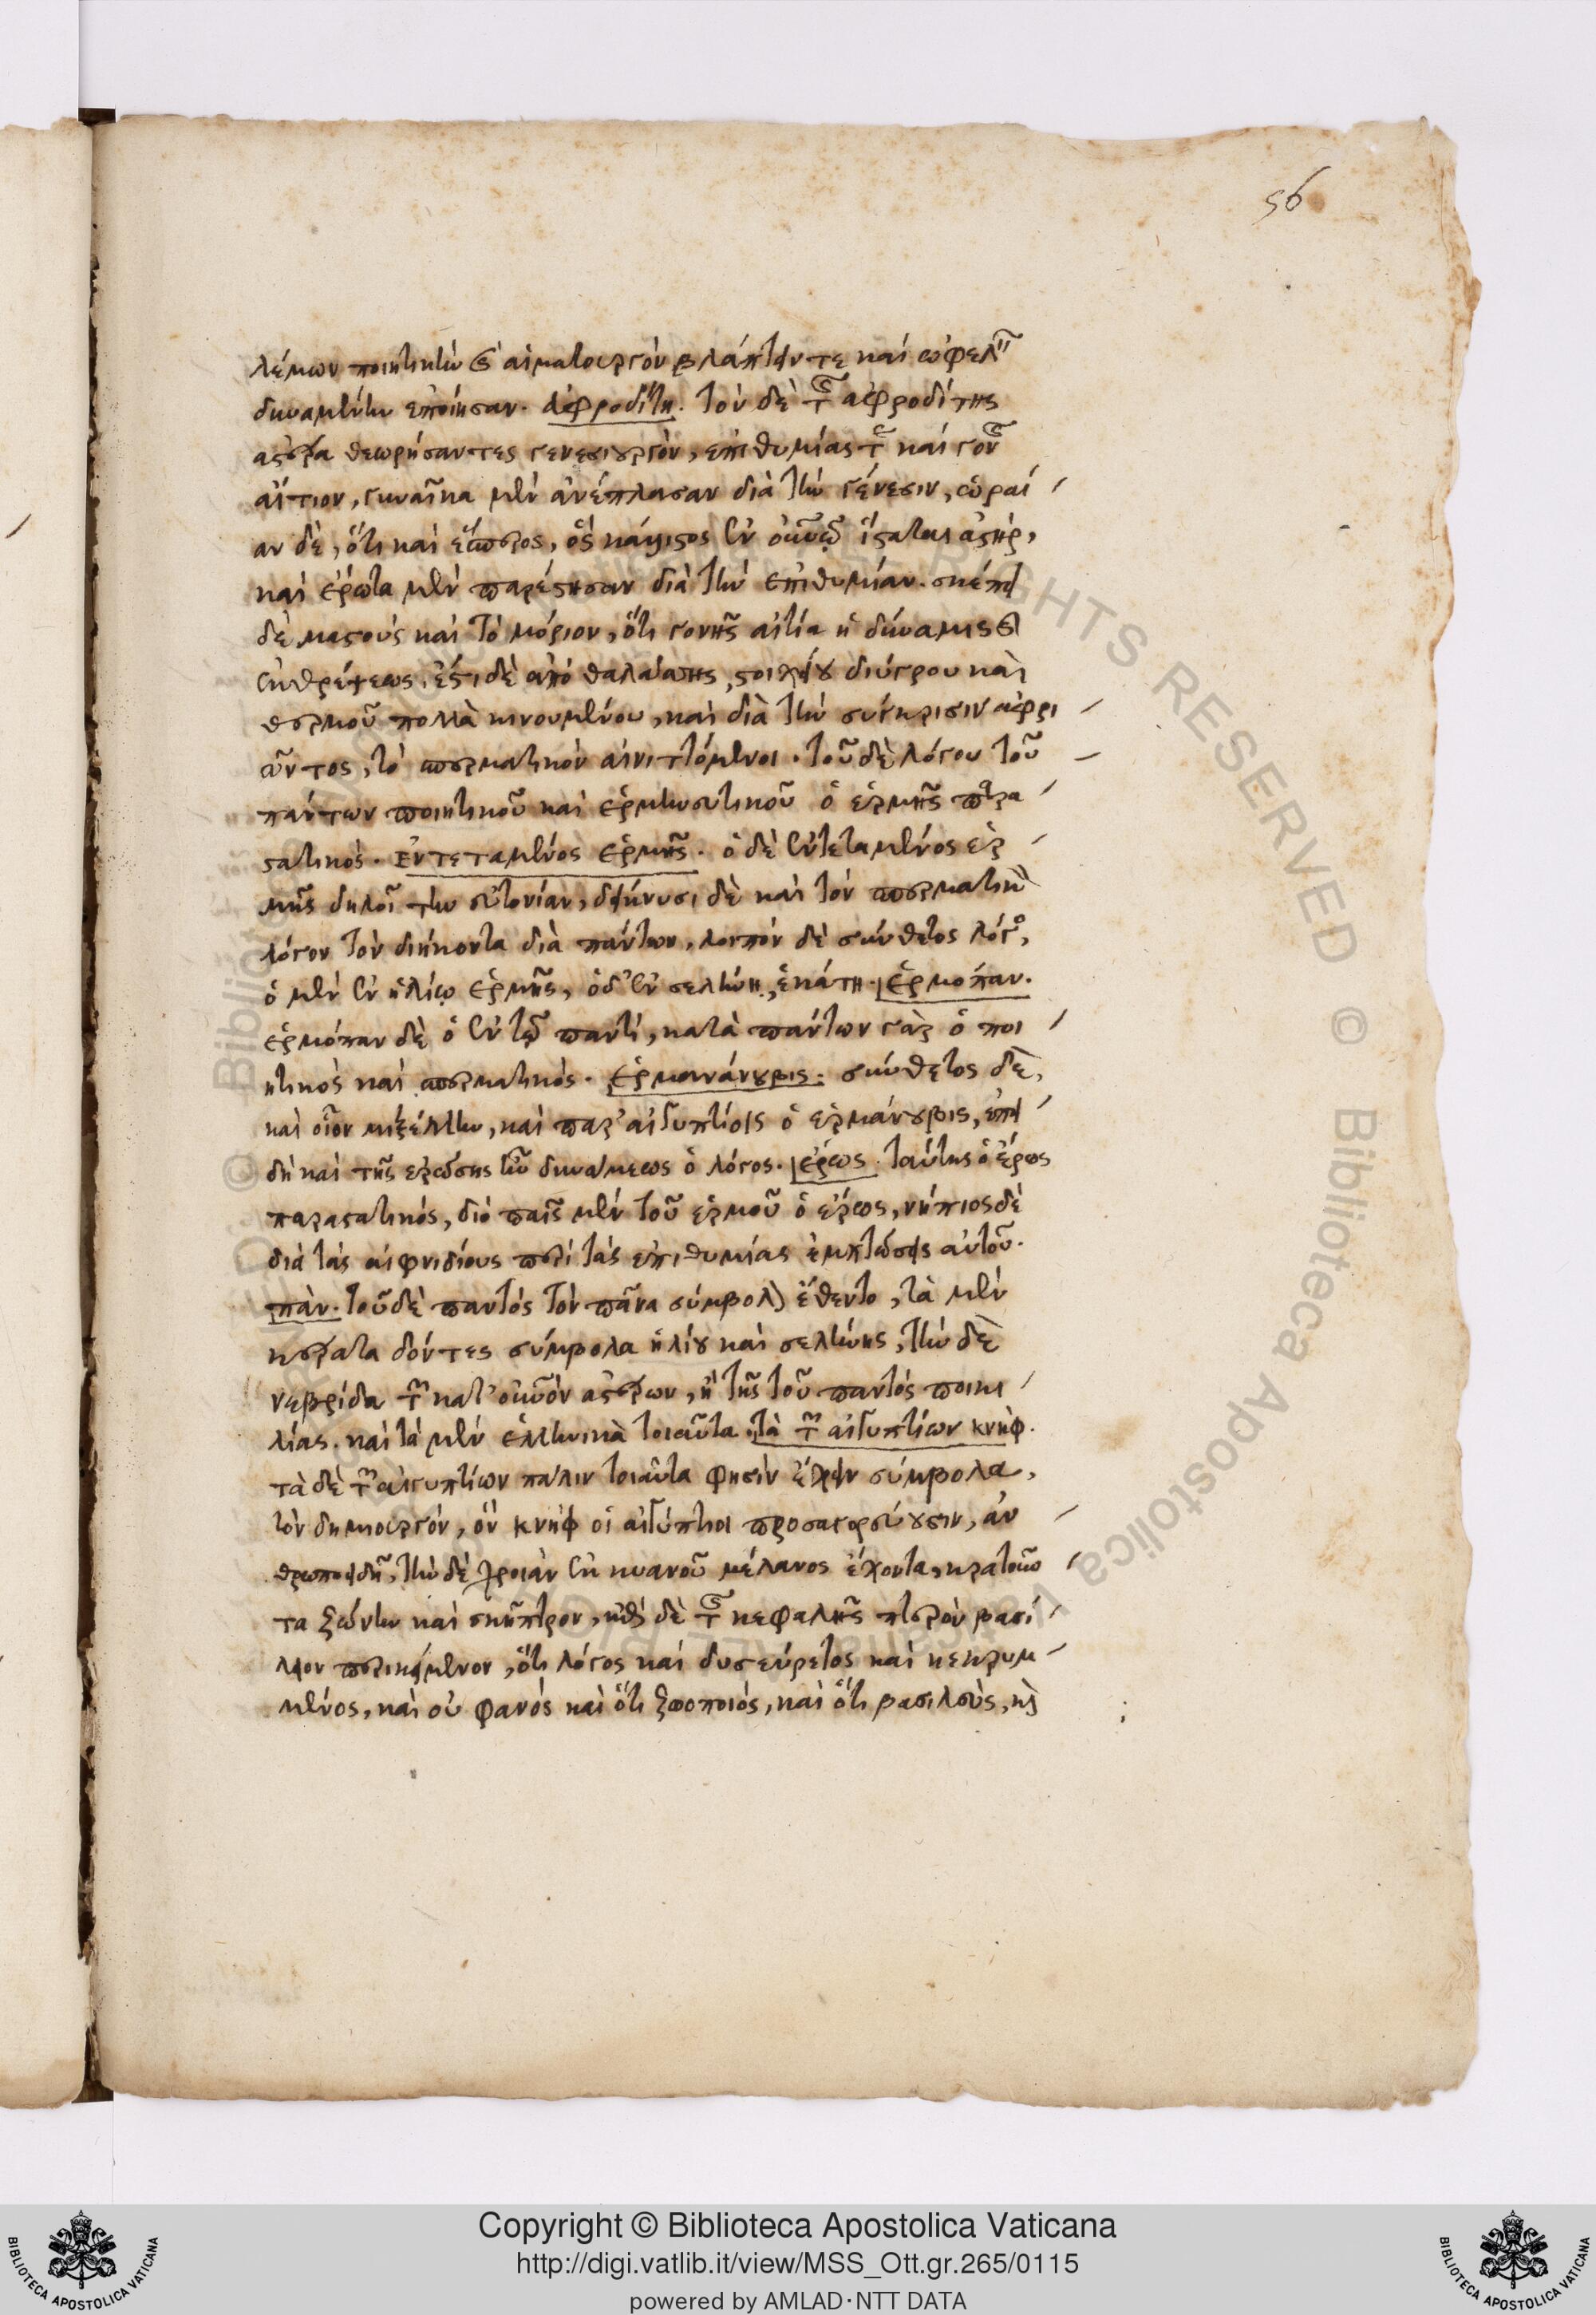 56
λέμων ποιητικὴν καὶ αἱματουργὸν βλάπτειν τε καὶ ὠφελεῖν
δυναμένην ἐποίησαν. ἀφροδίτη. τὸν δὲ τῆς ἀφροδίτης
ἀστέρα θεωρήσαντες γενεσιουργὸν, ἐπιθυμίας τε καὶ γονῆς
αἴτιον, γυναῖκα μὲν ἀνέπλασαν διὰ τὴν γένεσιν, ὡραί
αν δὲ, ὅτι καὶ ἕσπερος, ὃς κάλλιστος ἐν οὐρανῷ ἵσταται ἀστήρ,
καὶ ἔρωτα μὲν παρέστησαν διὰ τὴν ἐπιθυμίαν. σκέπει
δὲ μαστοὺς καὶ τὸ μόριον, ὅτι γονῆς αἰτία ἡ δύναμις καὶ
ἐκθρέψεως. ἔστι δὲ ἀπὸ θαλάσσης, στοιχείου διύγρου καὶ
θερμοῦ πολλὰ κινουμένου, καὶ διὰ τὴν σύγκρισιν ἀφρι
ῶντος, τὸ σπερματικὸν αἰνιττόμενοι. τοῦ δὲ λόγου τοῦ
πάντων ποιητικοῦ καὶ ἑρμηνευτικοῦ ὁ ἑρμῆς παρα
στατικός. ἐντεταμένος ἑρμῆς. ὁ δὲ ἐντεταμένος ἑρ
μῆς δηλοῖ τὴν εὐτονίαν, δείκνυσι δὲ καὶ τὸν σπερματικὸν
λόγον τὸν διήκοντα διὰ πάντων. λοιπὸν δὲ σύνθετος λόγος,
ὁ μὲν ἐν ἡλίῳ ἑρμῆς, ὁ δ' ἐν σελήνῃ, ἑκάτη. ἑρμόπαν.
ἑρμόπαν δὲ ὁ ἐν τῷ παντί, κατὰ πάντων γὰρ ὁ ποι
ητικὸς καὶ σπερματικός. ἑρμανάνουβις. σύνθετος δὲ,
καὶ οἷον μιξέλλην, καὶ παρ' αἰγυπτίοις ὁ ἑρμάνουβις, ἐπει
δὴ καὶ τῆς ἐρώσης ἦν δυνάμεως ὁ λόγος. ἔρως. ταύτης ὁ ἔρως
παραστατικός, διὸ παῖς μὲν τοῦ ἑρμοῦ ὁ ἔρως, νήπιος δὲ
διὰ τὰς αἰφνιδίους περὶ τὰς ἐπιθυμίας ἐμπτώσεις αὐτοῦ.
πὰν. τοῦ δὲ παντὸς τὸν πᾶνα σύμβολον ἔθεντο, τὰ μὲν
κέρατα δόντες σύμβολα ἡλίου καὶ σελήνης, τὴν δὲ
νεβρίδα τῶν κατ' οὐρανὸν ἀστέρων, ἢ τῆς τοῦ παντὸς ποικι
λίας. καὶ τὰ μὲν ἑλληνικὰ τοιαῦτα. τὰ τῶν αἰγυπτίων κνὴφ.
τὰ δὲ τῶν αἰγυπτίων πάλιν τοιαῦτα φησὶν ἔχειν σύμβολα,
τὸν δημιουργόν, ὃν κνὴφ οἱ αἰγύπτιοι προσαγορεύουσιν, ἀν
θρωποειδῆ, τὴν δὲ χροιὰν ἐκ κυανοῦ μέλανος ἔχοντα, κρατοῦν
τα ζώνην καὶ σκῆπτρον, ἐπὶ δὲ τῆς κεφαλῆς πτερὸν βασί
λειον περικείμενον, ὅτι λόγος καὶ δυσεύρετος καὶ κεκρυμ
μένος, καὶ οὐ φανός καὶ ὅτι ζωοποιός, καὶ ὅτι βασιλεὺς, καὶ
Copyright © Biblioteca Apostolica Vaticana
http://digi.vatlib.it/view/MSS_Ott.gr.265/0115
powered by AMLAD·NTT DATA